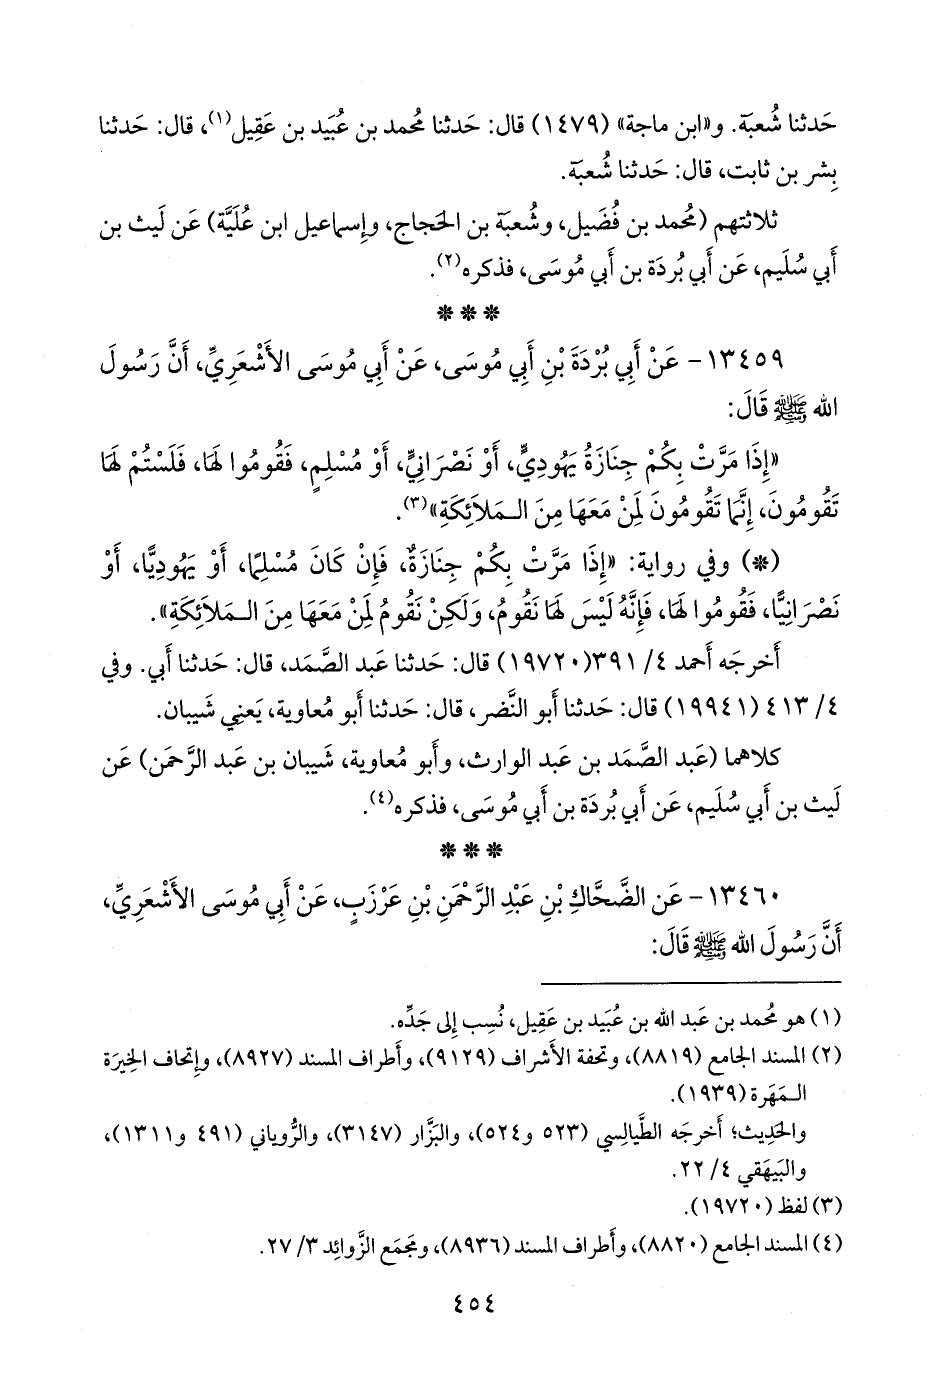 حَدثنا شُعبة. و«ابن ماجة» (١٤٧٩) قال: حَدثنا مُحمد بن عُبَيد بن عَقِيل(١)، قال: حَدثنا
بِشر بن ثابت، قال: حَدثنا شُعبة.
ثلاثتهم (مُحمد بن فُضَيل، وشُعبة بن الحَجاج، وإِسماعيل ابن عُلَيَّة) عَن لَيث بن
أَبي سُلَيم، عَن أَبي بُردَة بن أَبي مُوسَى، فذكره(٢).
* * *
١٣٤٥٩- عَنْ أَبِي بُرْدَةَ بْنِ أَبِي مُوسَى، عَنْ أَبِي مُوسَى الأَشْعَرِيِّ، أَنَّ رَسُولَ
الله ﷺ قَالَ:
«إِذَا مَرَّتْ بِكُمْ جِنَازَةُ يَهُودِيٍّ، أَوْ نَصْرَانِيٍّ، أَوْ مُسْلِمٍ، فَقُومُوا لَهَا، فَلَسْتُمْ لَهَا
تَقُومُونَ، إِنَّمَا تَقُومُونَ لِمَنْ مَعَهَا مِنَ الـمَلَائِكَةِ»(٣).
(*) وفي رواية: «إِذَا مَرَّتْ بِكُمْ جِنَازَةٌ، فَإِنْ كَانَ مُسْلِمًا، أَوْ يَهُودِيًّا، أَوْ
نَصْرَانِيًّا، فَقُومُوا لَهَا، فَإِنَّهُ لَيْسَ لَهَا نَقُومُ، وَلَكِنْ نَقُومُ لِمَنْ مَعَهَا مِنَ الـمَلَائِكَةِ».
أَخرجَه أَحمد ٤/ ٣٩١(١٩٧٢٠) قال: حَدثنا عَبد الصَّمَد، قال: حَدثنا أَبي. وفي
٤/ ٤١٣ (١٩٩٤١) قال: حَدثنا أَبو النَّضر، قال: حَدثنا أَبو مُعاوية، يَعنِي شَيبان.
كلاهما (عَبد الصَّمَد بن عَبد الوارث، وأَبو مُعاوية، شَيبان بن عَبد الرَّحمَن) عَن
لَيث بن أَبي سُلَيم، عَن أَبي بُردَة بن أَبي مُوسَى، فذكره(٤).
* * *
١٣٤٦٠- عَنِ الضَّحَّاكِ بْنِ عَبْدِ الرَّحْمَنِ بْنِ عَرْزَبٍ، عَنْ أَبِي مُوسَى الأَشْعَرِيِّ،
أَنَّ رَسُولَ الله ﷺ قَالَ:
(١) هو مُحمد بن عَبد الله بن عُبَيد بن عَقِيل، نُسِب إِلى جَدِّه.
(٢) المسند الجامع (٨٨١٩)، وتحفة الأَشراف (٩١٢٩)، وأَطراف المسند (٨٩٢٧)، وإِتحاف الخِيرَة
الـمَهَرة (١٩٣٩).
والحَدِيث؛ أَخرجَه الطَّيالِسي (٥٢٣ و٥٢٤)، والبَزَّار (٣١٤٧)، والرُّوياني (٤٩١ و١٣١١)،
والبَيهَقي ٤/ ٢٢.
(٣) لفظ (١٩٧٢٠).
(٤) المسند الجامع (٨٨٢٠)، وأَطراف المسند (٨٩٣٦)، ومَجمَع الزَّوائِد ٣/ ٢٧.
٤٥٤